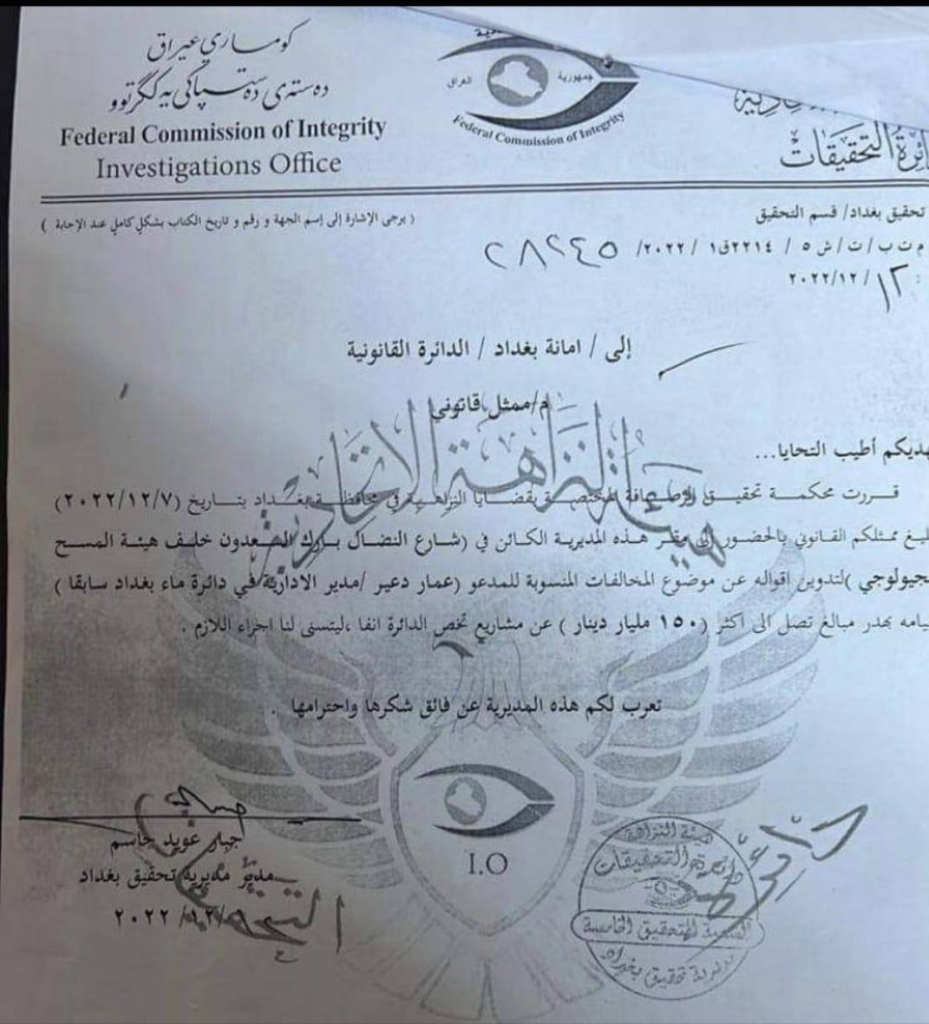 كوماري عيراق
دەستەی دەستپاكی يەكگرتوو
Federal Commission of Integrity
Investigations Office
جمهورية العراق
Federal Commission of Integrity
ائرة التحقيقات
( يرجى الإشارة إلى إسم الجهة و رقم و تاريخ الكتاب بشكل كامل عند الإجابة )
تحقيق بغداد/ قسم التحقيق
م ت ب / ت / ش ٥ / ٢٢١٤ق١ / ٢٠٢٢/ ٢٨٢٤٥
١٢ /٢٠٢٢/١٢
إلى / امانة بغداد / الدائرة القانونية
م/ممثل قانوني
هديكم أطيب التحايا...
قـررت محكمـة تحقيـق الرصـافة المختصـة بقضـايا النزاهـة في محافظـة بغـداد بتـاريخ (٢٠٢٢/١٢/٧)
ليغ ممثلكم القانوني بالحضور إلى مقر هـذه المديرية الكائن في (شارع النضال بارك السعدون خليف هيئة المسح
لجيولوجي )لتدوين اقواله عن موضوع المخالفات المنسوبة للمدعو (عمار دعير /مدير الادارية في دائرة ماء بغداد سابقا )
يامه بهدر مبالغ تصل الى اكثر (١٥٠ مليار دينار ) عن مشاريع تخص الدائرة انفا ،ليتسنى لنا اجراء اللازم .
تعرب لكم هذه المديرية عن فائق شكرها واحترامها .
هيئة النزاهة الاتحادية
I.O
جبار عويد جاسم
مدير مديرية تحقيق بغداد
٢٠٢٢ /١٢/
هيئة النزاهة
دائرة التحقيقات
الشعبة التحقيق الخامسة
مديرية تحقيق بغداد